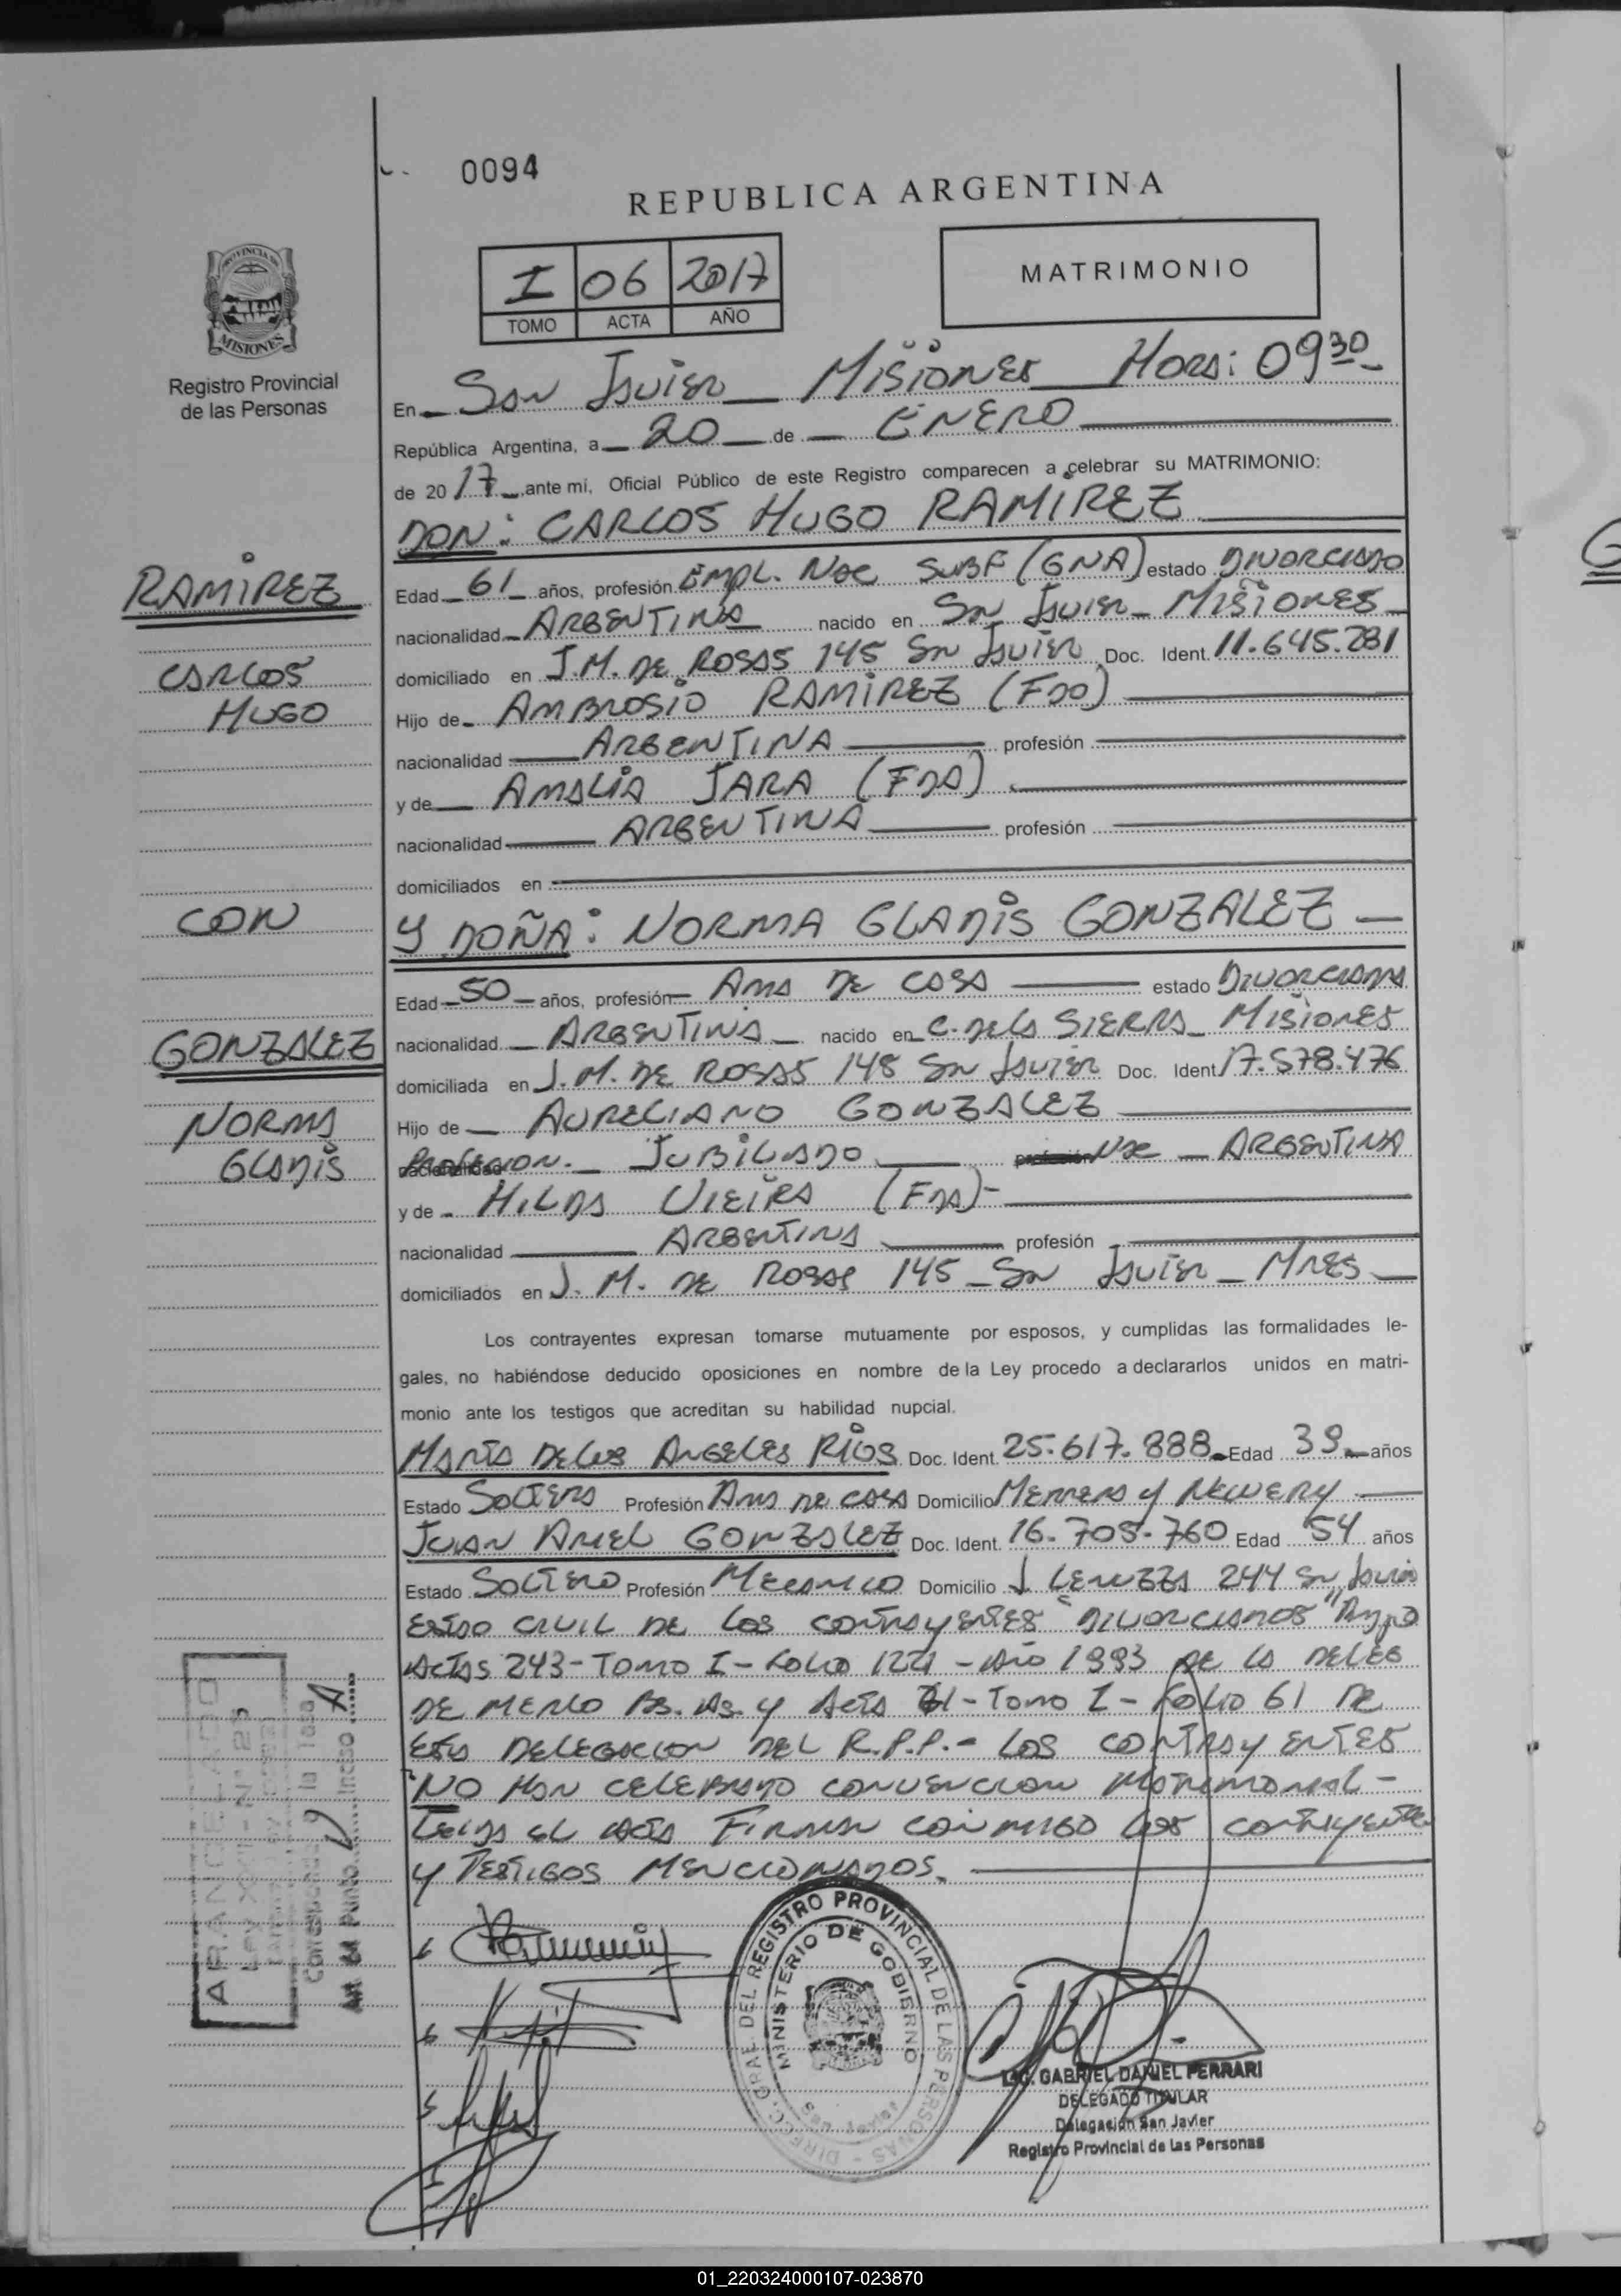 0094
REPUBLICA ARGENTINA
I 06 2017
TOMO ACTA AÑO
MATRIMONIO
PROVINCIA DE
MISIONES
Registro Provincial
de las Personas
En San Javier Misiones Hora: 09 30
República Argentina, a 20 de ENERO
de 2017 ante mí, Oficial Público de este Registro comparecen a celebrar su MATRIMONIO:
DON: CARLOS HUGO RAMIREZ
RAMIREZ
CARLOS
HUGO
Edad 61 años, profesión EMPL. NAC SUBF (GNA) estado DIVORCIADO
nacionalidad ARGENTINA nacido en San Javier - MISIONES
domiciliado en J.M. DE ROSAS 145 San Javier Doc. Ident. 11.645.281
Hijo de AMBROSIO RAMIREZ (FDO)
nacionalidad ARGENTINA profesión
y de AMALIA JARA (FDA)
nacionalidad ARGENTINA profesión
domiciliados en
CON
Y DOÑA: NORMA GLADIS GONZALEZ
GONZALEZ
NORMA
GLADIS
Edad 50 años, profesión AMA DE CASA estado DIVORCIADA
nacionalidad ARGENTINA nacido en C. DE LA SIERRA - MISIONES
domiciliada en J. M. DE ROSAS 145 San Javier Doc. Ident 17.578.476
Hijo de AURELIANO GONZALEZ
PROFESION. JUBILADO NAC - ARGENTINA
y de HILDA VIEIRA (FDA)-
nacionalidad ARGENTINA profesión
domiciliados en J. M. DE ROSAS 145 - San Javier - MNES
Los contrayentes expresan tomarse mutuamente por esposos, y cumplidas las formalidades le-
gales, no habiéndose deducido oposiciones en nombre de la Ley procedo a declararlos unidos en matri-
monio ante los testigos que acreditan su habilidad nupcial.
MARIA DE LOS ANGELES RIOS Doc. Ident. 25.617.888 Edad 39 años
Estado SOLTERA Profesión AMA DE CASA Domicilio y NEWERY
JUAN ARIEL GONZALEZ Doc. Ident. 16.708.760 Edad 54 años
Estado SOLTERO Profesión MECANICO Domicilio J 244 San Javier
ESTADO CIVIL DE LOS CONTRAYENTES "DIVORCIADOS"
ACTAS 243 - TOMO I - FOLIO 122 - AÑO 1993 DE LA DELEG
DE MERLO BS. AS. y ACTA 61 - TOMO I - FOLIO 61 DE
ESTA DELEGACION DEL R.P.P. - LOS CONTRAYENTES
NO HAN CELEBRADO CONVENCION MATRIMONIAL -
LEIDA EL ACTA FIRMAN CONMIGO LOS CONTRAYENTES
y TESTIGOS MENCIONADOS.
ARANCELADO
Corresponde la Tasa
Art. 61 Punto 9 Inciso A
DIRECC. GRAL. DEL REGISTRO PROVINCIAL DE LAS PERSONAS
MINISTERIO DE GOBIERNO
San Javier
LIC. GABRIEL DANIEL FERRARI
DELEGADO TITULAR
Delegación San Javier
Registro Provincial de Las Personas
01_220324000107-023870